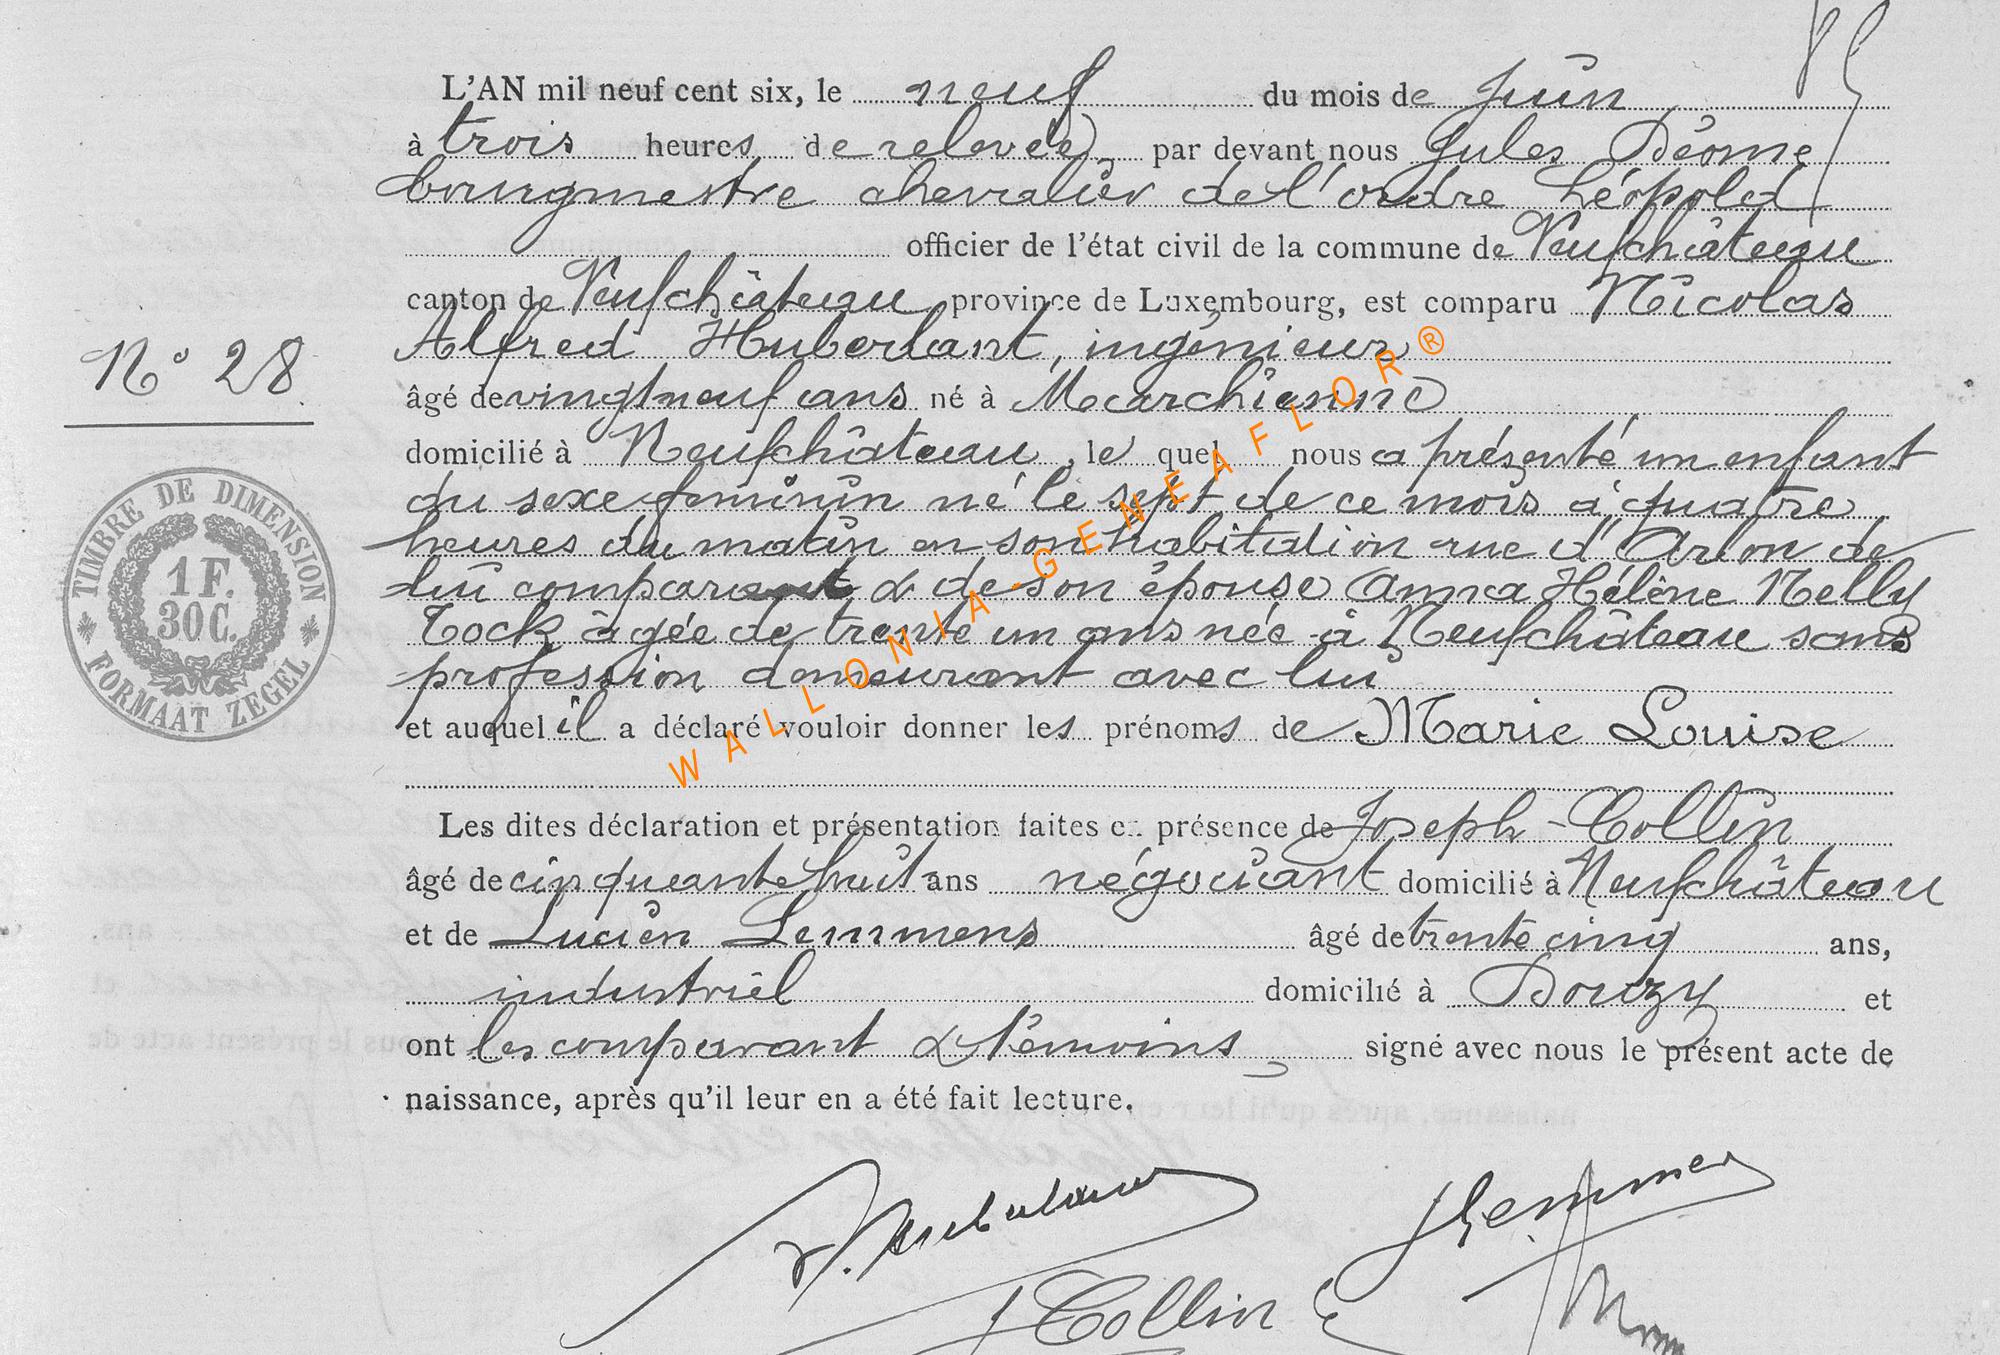 L'AN mil neuf cent six, le neuf du mois de Juin
à trois heures de relevée par devant nous Jules Déome
bourgmestre chevalier de l'ordre Léopold
officier de l'état civil de la commune de Neufchâteau
canton de Neufchâteau province de Luxembourg, est comparu Nicolas
Alfred Huberlant, ingénieur
N° 28
âgé de vingt neuf ans né à Marchienne
domicilié à Neufchâteau, le quel nous a présenté un enfant
du sexe feminin né le sept de ce mois à quatre
heures du matin en son habitation rue d'Arlon de
lui comparant & de son épouse Anna Hélène Nelly
Tock âgée de trente un ans née à Neufchâteau sans
profession demeurant avec lui
et auquel il a déclaré vouloir donner les prénoms de Marie Louise
Les dites déclaration et présentation faites en présence de Joseph Collin
âgé de cinquante huit ans négociant domicilié à Neufchâteau
et de Lucien Lemmens âgé de trente cinq ans,
industriel domicilié à Douzy et
ont les comparant & témoins signé avec nous le présent acte de
naissance, après qu'il leur en a été fait lecture.
TIMBRE DE DIMENSION
1 F.
30 C.
FORMAAT ZEGEL
WALLONIA-GENEAFLOR®
Huberlant
Lemmens
J Collin